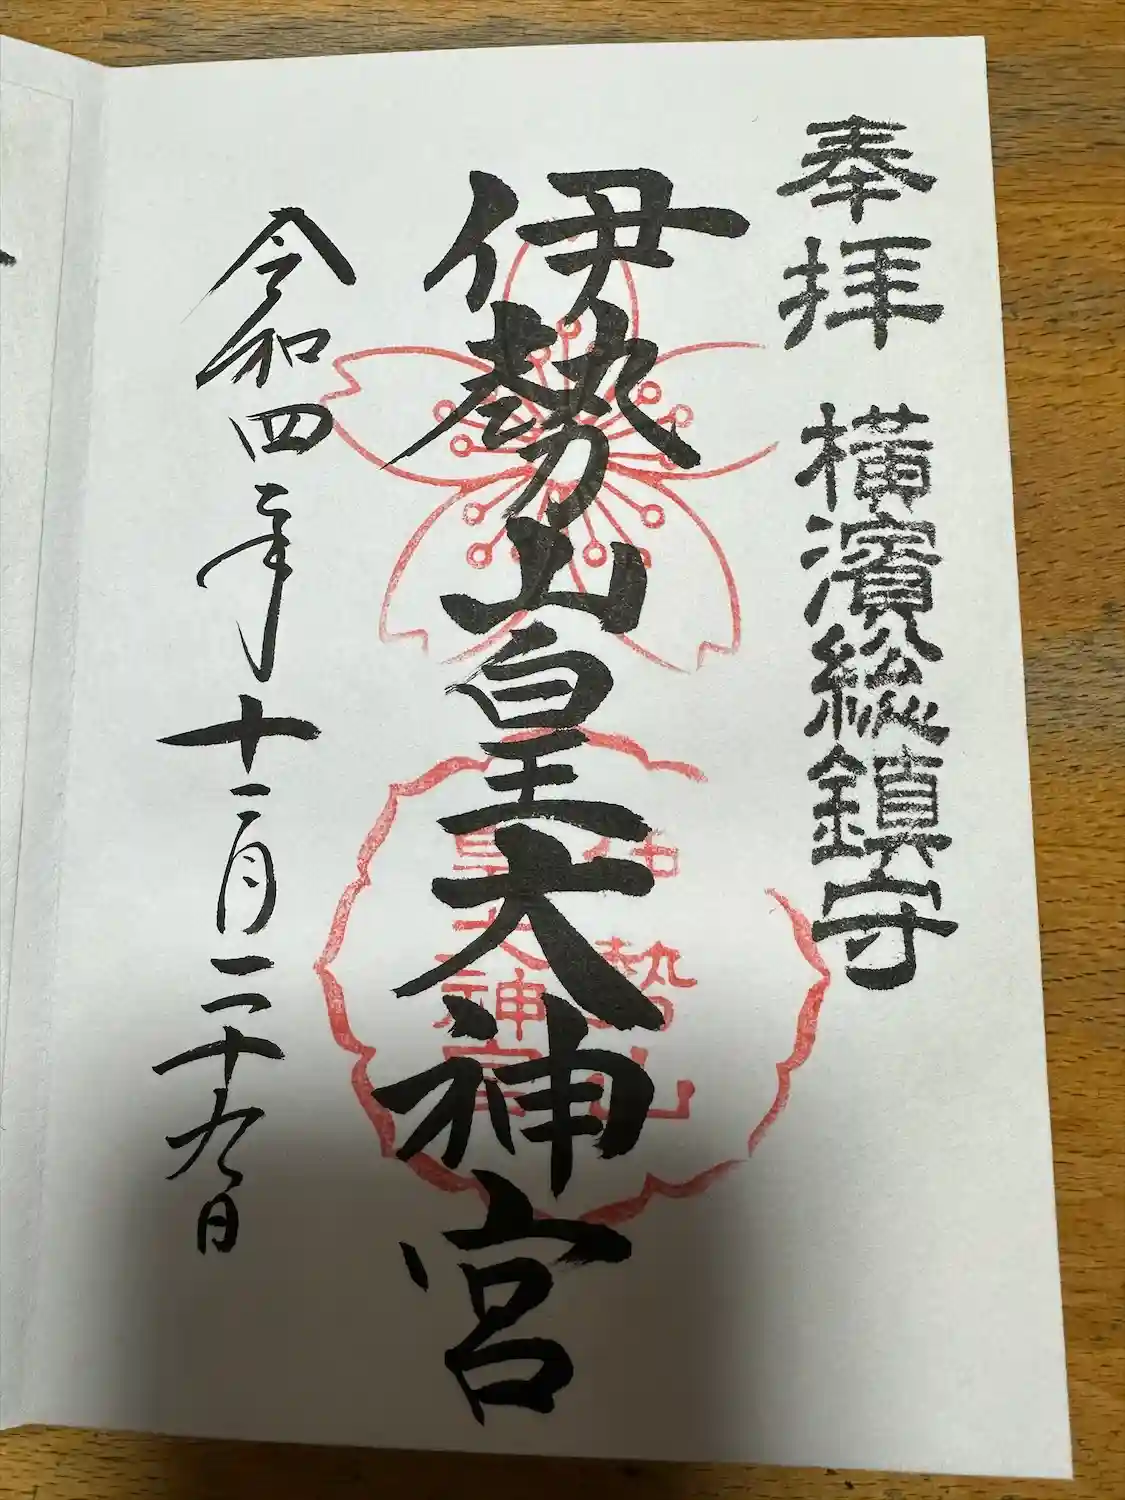 奉拝 横濱総鎮守
伊勢山皇大神宮
伊勢山
皇大神宮
令和四年十二月二十九日